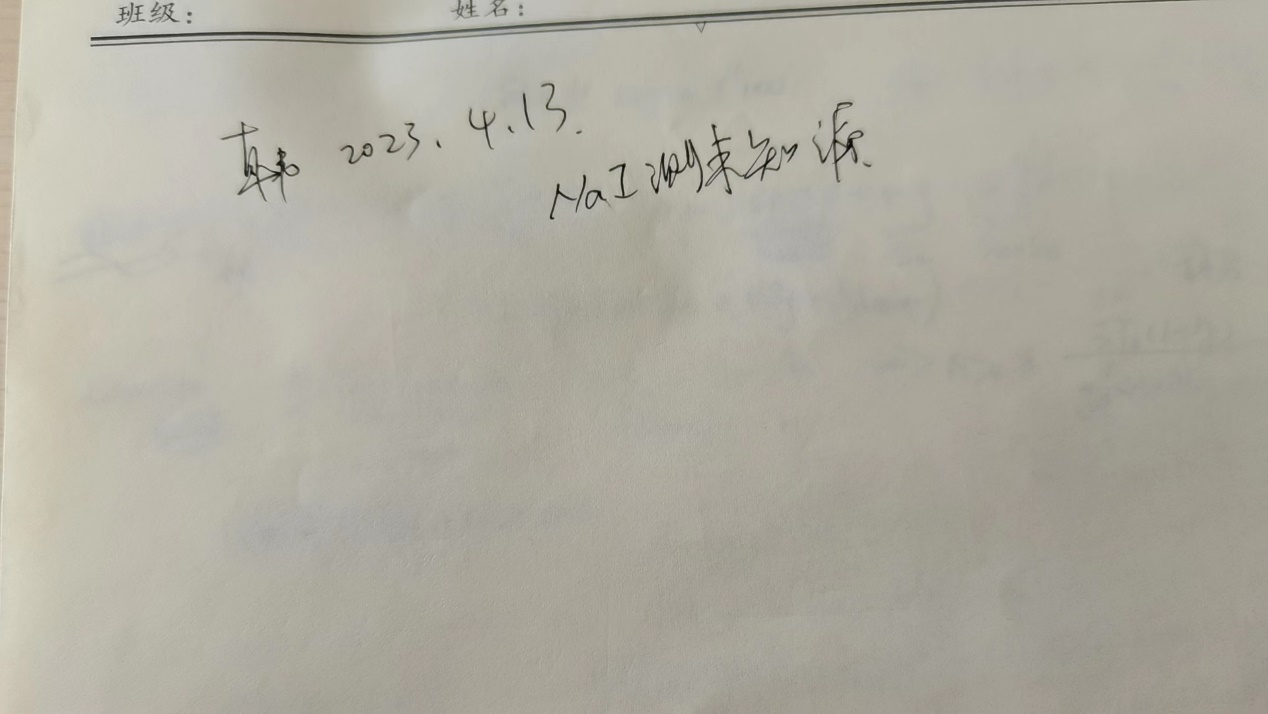 班级： 姓名：
2023.4.13.
NaI测未知源.